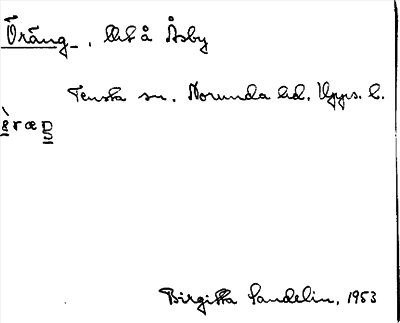 Öräng, Urt å Åsby
Tensta sn. Norunda hd. Upps. l.
Birgitta Sandelin, 1953